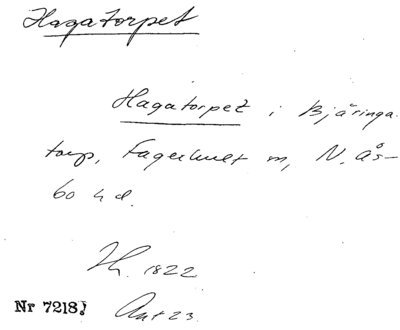 Hagatorpet
Hagatorpet i Bjäringa-
torp, Fagerhult m, N. Ås-
bo hd.
Hl. 1822
Nr 7218 Ant 23